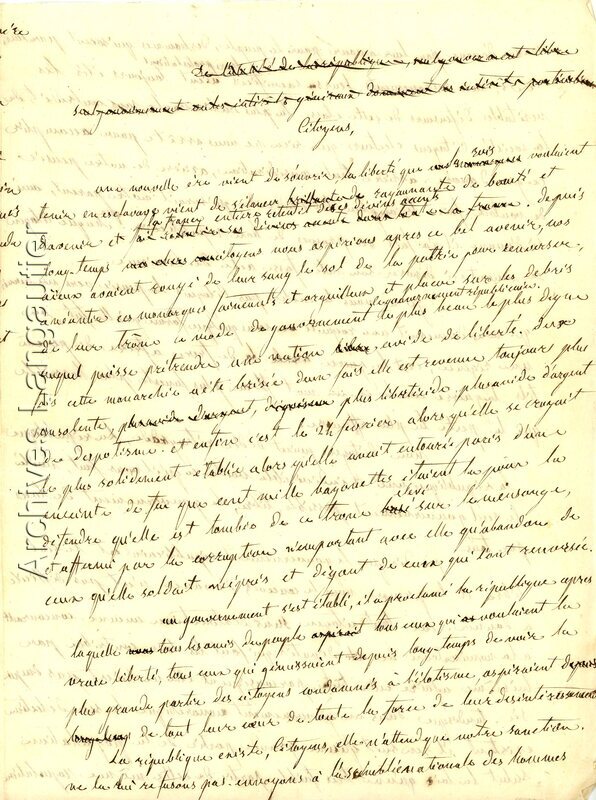 Citoyens,
une nouvelle ère vient de s'ouvrir la liberté que suis voulaient
tenir en esclavage vient de s'élancer rayonnante de beauté et
d'avenir et la france entière retentit de ses divins accents
depuis
long-temps citoyens nous aspirions apres ce bel avenir, nos
aieux avaient rougi de leur sang le sol de la patrie pour renverser,
anéantir ces monarques faineants et orguilleux et placer sur les debris
de leur trône ce mode de gouvernement le plus beau le plus digne
le gouvernement républicain.
auquel puisse prétendre une nation avide de liberté. Deux
fois cette monarchie a été brisée deux fois elle est revenue toujours plus
insolente, plus liberticide plus avide d'argent
de despotisme. et enfin c'est le 24 fevrier alors qu'elle se croyait
le plus solidement établie alors qu'elle avait entouré paris d'une
enceinte de feu que cent mille bayonettes étaient la pour la
defendre qu'elle est tombée de ce trône élevé sur le mensonge,
et affermi par la corruption n'emportant avec elle qu'abandon de
ceux qu'elle soldait mépris et dégout de ceux qui l'ont renversée.
un gouvernement s'est établi, il a proclamé la république apres
laquelle tous les amis du peuple tous ceux qui voulaient la
vraie liberté, tous ceux qui gémissaient depuis long-temps de voir la
plus grande partie des citoyens condamnés à l'ilotisme aspiraient depuis
de tout leur cœur de toute la force de leur desintéressement
La république existe, Citoyens, elle n'attend que notre sanction.
ne la lui refusons pas. envoyons à l'assemblée nationale des hommes
Archives Langautier